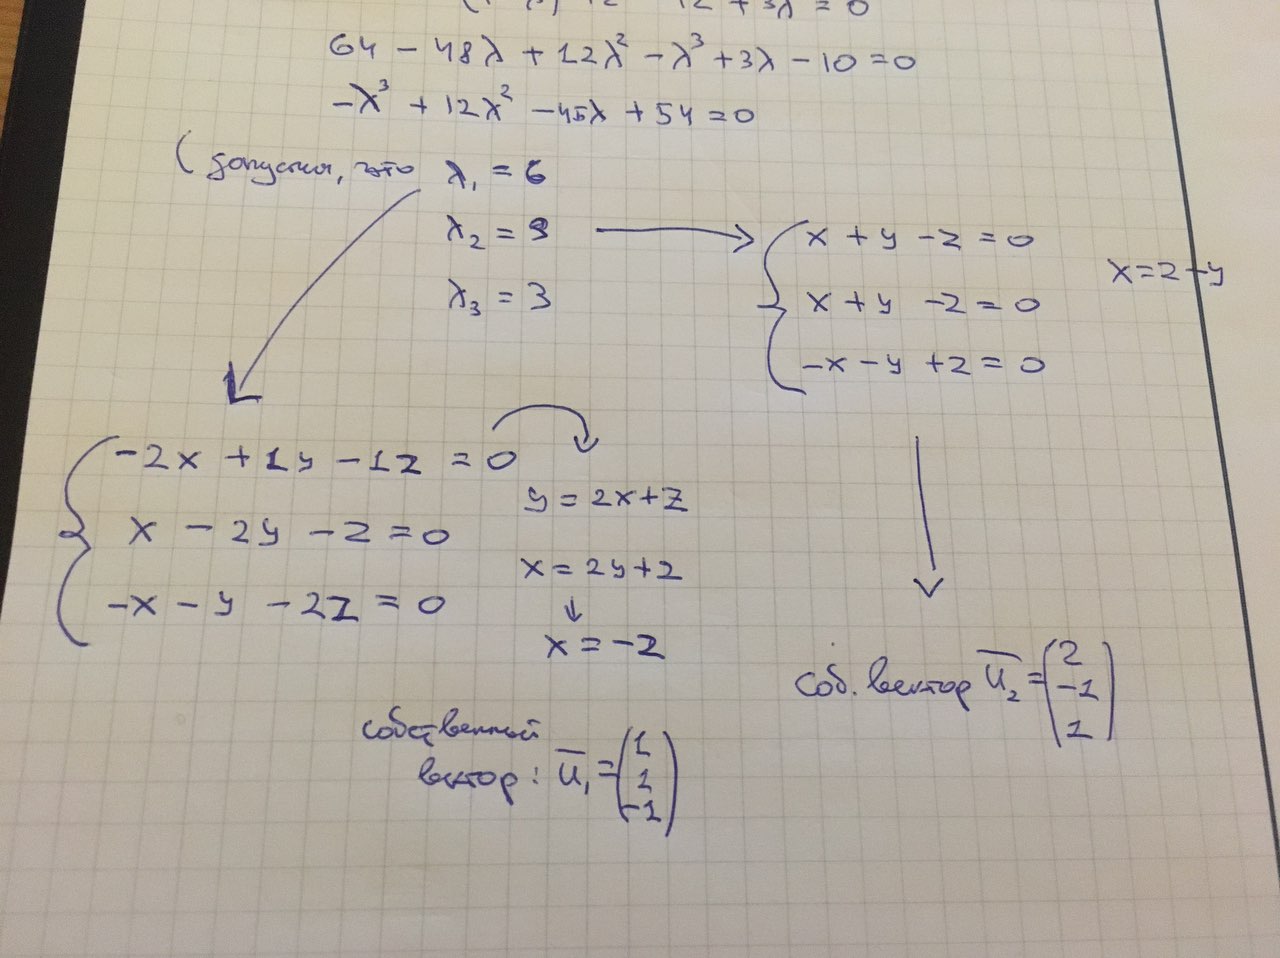 12 + 3λ = 0
64 - 48λ + 12λ² - λ³ + 3λ - 10 = 0
-λ³ + 12λ² - 45λ + 54 = 0
(допустим, что λ₁ = 6
λ₂ = 3
λ₃ = 3
x + y - z = 0
x = z - y
x + y - z = 0
-x - y + z = 0
-2x + 1y - 1z = 0
y = 2x + z
x - 2y - z = 0
x = 2y + z
-x - y - 2z = 0
x = -z
соб. вектор u₂ = (2
-1
1)
собственный
вектор: u₁ = (1
1
-1)